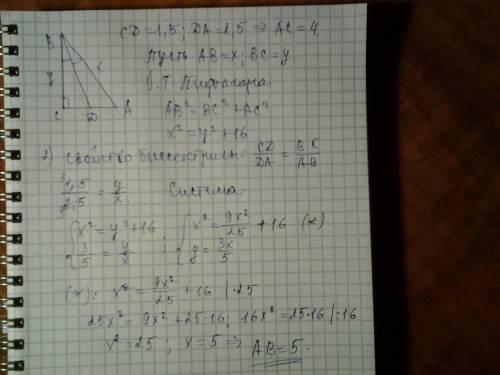 CD=1,5; DA=2,5 ⇒ AC=4
Пусть AB=x; BC=y
1. Т. Пифагора
AB²=BC²+AC²
x²=y²+16
B
y
x
C
D
A
2) Свойство биссектрисы: CD/DA = BC/AB
1,5/2,5 = y/x
Система
{ x²=y²+16 ; { x²=9x²/25+16 (*)
3/5=y/x y=3x/5
(*): x²=9x²/25+16 |·25
25x²=9x²+25·16; 16x²=25·16 |:16
x²=25; x=5 ⇒ AB=5.